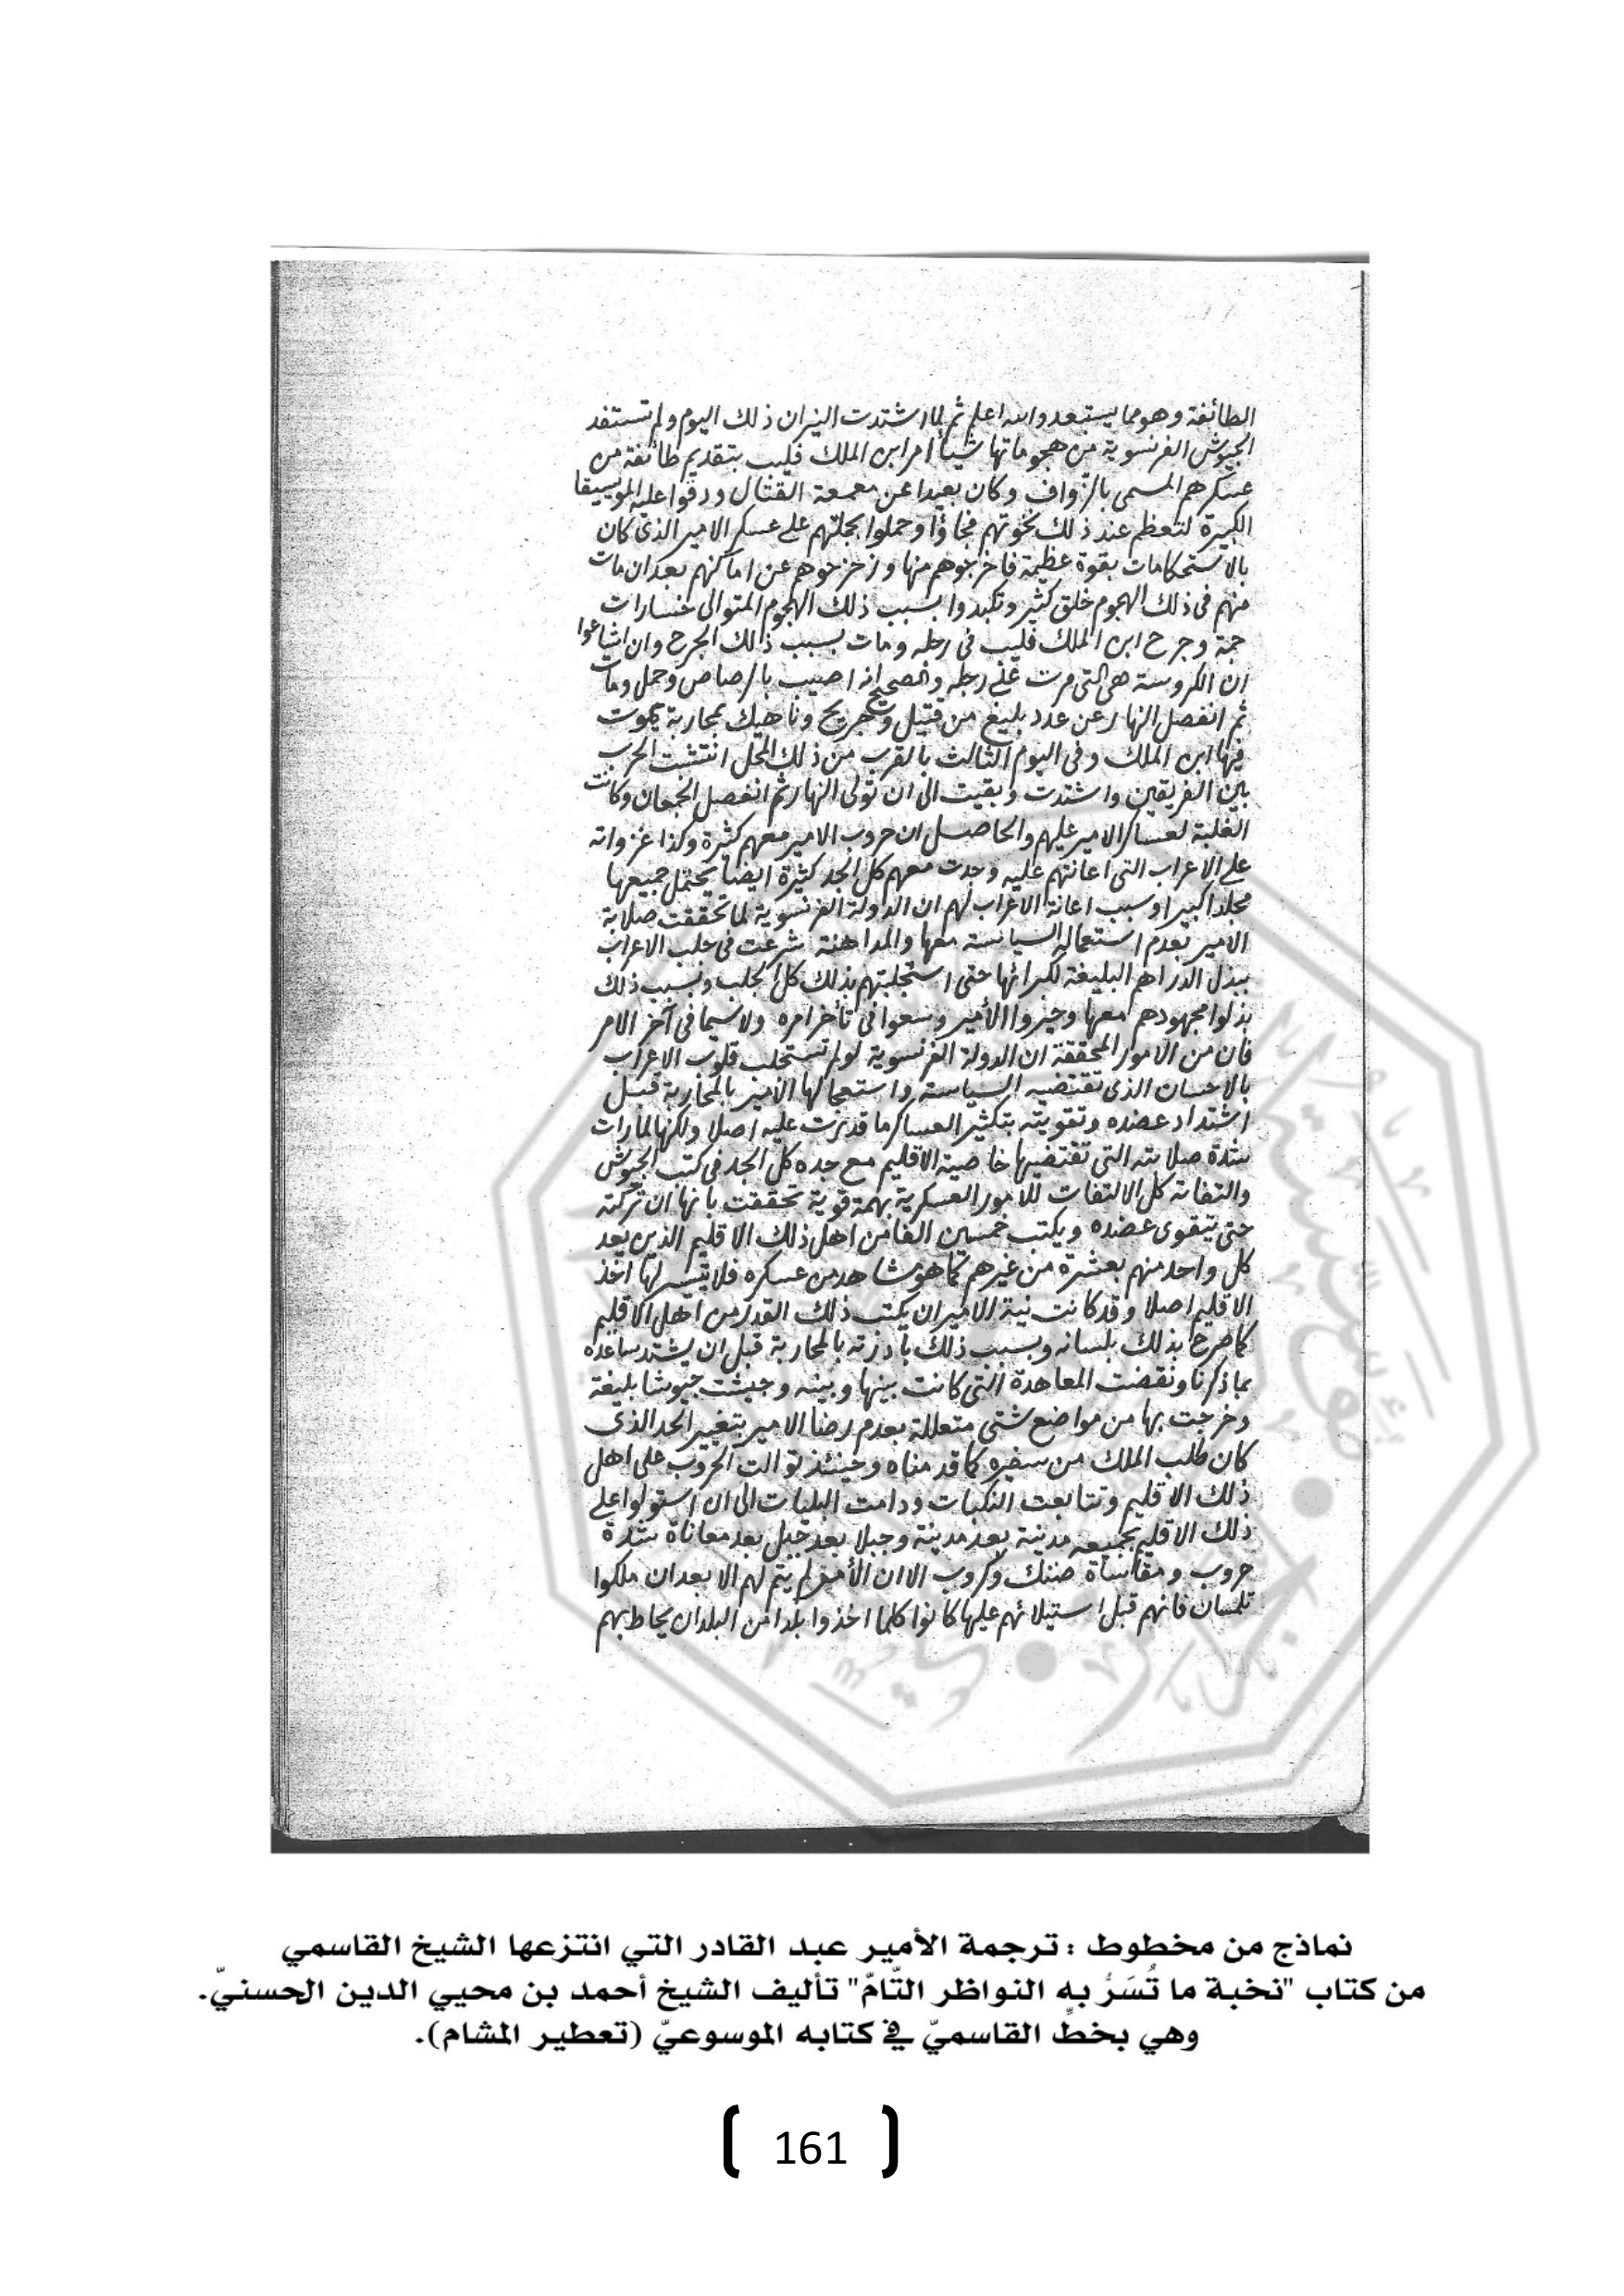 الطائفة وهو مما يستبعد والله اعلم ثم لما اشتدت النيران ذلك اليوم ولم تستفد
الجيوش الفرنسوية من هجوماتها شيأ امر ابن الملك فليب بتقديم طائفة من
عسكرهم المسمى بالزواف وكان بعيدا عن معمعة القتال ودقوا عليه الموسيقا
الكبيرة لتعظم عند ذلك نخوتهم فجاؤا وحملوا بجملتهم على عسكر الامير الذى كان
بالاستحكامات بقوة عظيمة فاخرجوهم منها وزحزحوهم عن اماكنهم بعد ان مات
منهم فى ذلك الهجوم خلق كثير وتكبدوا بسبب ذلك الهجوم المتوالى خسارات
جمة وجرح ابن الملك فليب فى رجله ومات بسبب ذلك الجرح وان اشاعوا
ان الكروسة هى التى مرت على رجله والصحيح انه اصيب بالرصاص وحمل ومات
ثم انفصل النهار عن عدد بليغ من قتيل وجريح وناهيك بمحاربة يموت
فيها ابن الملك وفى اليوم الثالث بالقرب من ذلك المحل انتشت الحرب
بين الفريقين واشتدت وبقيت الى ان تولى النهار ثم انفصل الجمعان وكانت
الغلبة لعساكر الامير عليهم والحاصل ان حروب الامير معهم كثيرة وكذا غزواته
على الاعراب التى اعانتهم عليه وجدت معهم كل الجد كثيرة ايضا يحتمل جميعها
مجلدا كبيرا وسبب اعانة الاعراب لهم ان الدولة الفرنسوية لما تحققت صلابة
الامير بعدم استعماله السياسة معها والمداهنة شرعت فى جلب الاعراب
ببذل الدراهم البليغة لكبرائها حتى استجلبتهم بذلك كل الجلب وبسبب ذلك
بذلوا مجهودهم معها وحيروا الأمير وسعوا فى تأخر امره ولا سيما فى آخر الامر
فان من الامور المحققة ان الدولة الفرنسوية لو لم تستجلب قلوب الاعراب
بالاحسان الذى تقتضيه السياسة واستعجالها الامير بالمحاربة قبل
اشتداد عضده وتقويته بتكثير العساكر ما قدرت عليه اصلا ولكنها لما رات
شدة صلابته التى تقتضيها خاصية الاقليم مع جده كل الجد فى كتب الجيوش
والتفاته كل الالتفات للامور العسكرية بهمة قوية تحققت بانها ان تركته
حتى يتقوى عضده ويكتب خمسين الفا من اهل ذلك الاقليم الذين يعد
كل واحد منهم بعشرة من غيرهم كما هو مشاهد من عسكره فلا تيسر لها اخذ
الاقليم اصلا وقد كانت نية الامير ان يكتب ذلك القدر من اهل الاقليم
كما صرح بذلك بلسانه وبسبب ذلك بادرته بالمحاربة قبل ان يشتد ساعده
بما ذكرنا ونقضت المعاهدة التى كانت بينها وبينه وجيشت جيوشا بليغة
وخرجت بها من مواضع شتى متعللة بعدم رضا الامير بتغيير الحد الذى
كان طلب الملك من سفيره كما قدمناه وحينئذ توالت الحروب على اهل
ذلك الاقليم وتتابعت النكبات ودامت البليات الى ان استولوا على
ذلك الاقليم بجميعه مدينة بعد مدينة وجبلا بعد جبل بعد معاناة شدة
حروب ومقاساة ضنك وكروب الا ان الأمر لم يتم لهم الا بعد ان ملكوا
تلمسان فانهم قبل استيلائهم عليها كانوا كلما اخذوا بلدا من البلدان يحاط بهم
نماذج من مخطوط : ترجمة الأمير عبد القادر التي انتزعها الشيخ القاسمي
من كتاب "نخبة ما تُسَرُّ به النواظر التّامّ" تأليف الشيخ أحمد بن محيي الدين الحسنيّ.
وهي بخطِّ القاسميّ في كتابه الموسوعيّ (تعطير المشام).
161